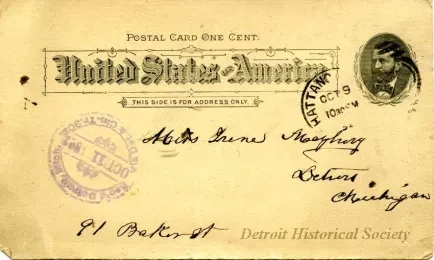 POSTAL CARD ONE CENT.
United States of America
THIS SIDE IS FOR ADDRESS ONLY.
HATTANO
OCT 9
1030 M
OCT 11
Detroit, Mich.
Miss Irene Maybury
Detroit
Michigan
91 Baker st
Detroit Historical Society